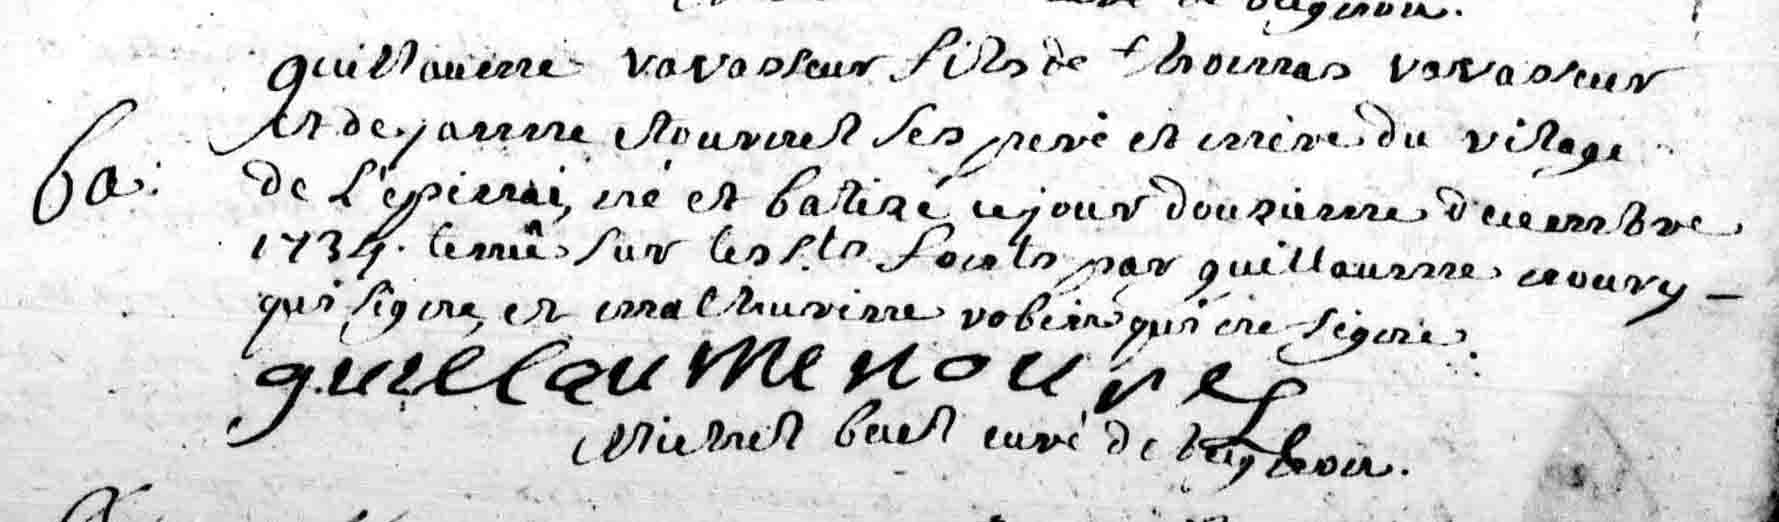 guillaume vavasseur fils de thomas vavasseur
ba. et de janne ses pere et mere du vilage
de L'epinai, né et batizé ce jour douzieme decembre
1734. tenu sur les sts fonts par guillaumme noury
qui signe, et mathurinne robin qui ne signe.
guillaume noury
michel curé de